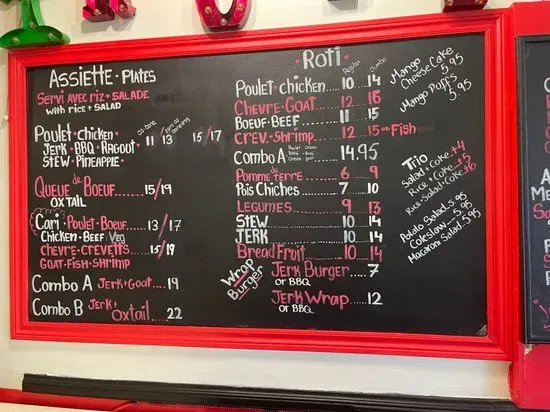 ASSIETTE • PLATES
SERVI AVEC RIZ + SALADE
WITH RICE + SALAD
Poulet • Chicken •
JERK • BBQ • RAGOUT • 11/13 15/17
STEW • PINEAPPLE •
QUEUE de BOEUF 15/19
OXTAIL
Cari • Poulet • Boeuf 13/17
Chicken • Beef Veg
CHEVRE • CREVETTS 15/19
GOAT • FISH • SHRIMP
COMBO A JERK + GOAT 19
COMBO B JERK + Oxtail 22
ROTI
Regular Jumbo
Poulet • chicken 10 14
CHEVRE • GOAT 12 16
BOEUF • BEEF 11 15
CREV. • SHRIMP 12 15 → FISH
COMBO A 14.95
POMME de TERRE 6 9
POIS CHICHES 7 10
LEGUMES 9 13
STEW 10 14
JERK 10 14
BREAD FRUIT 10 14
WRAP BURGER
JERK BURGER 7
OR BBQ
JERK WRAP 12
OR BBQ
Mango
Cheese Cake
5.95
Mango Puffs
5.95
TRIO
Salad + Cake +4
Rice + Cake +5
Rice • Salad • Cake +6
Potato Salad 5.95
Coleslaw 5.95
Macaroni Salad 5.95